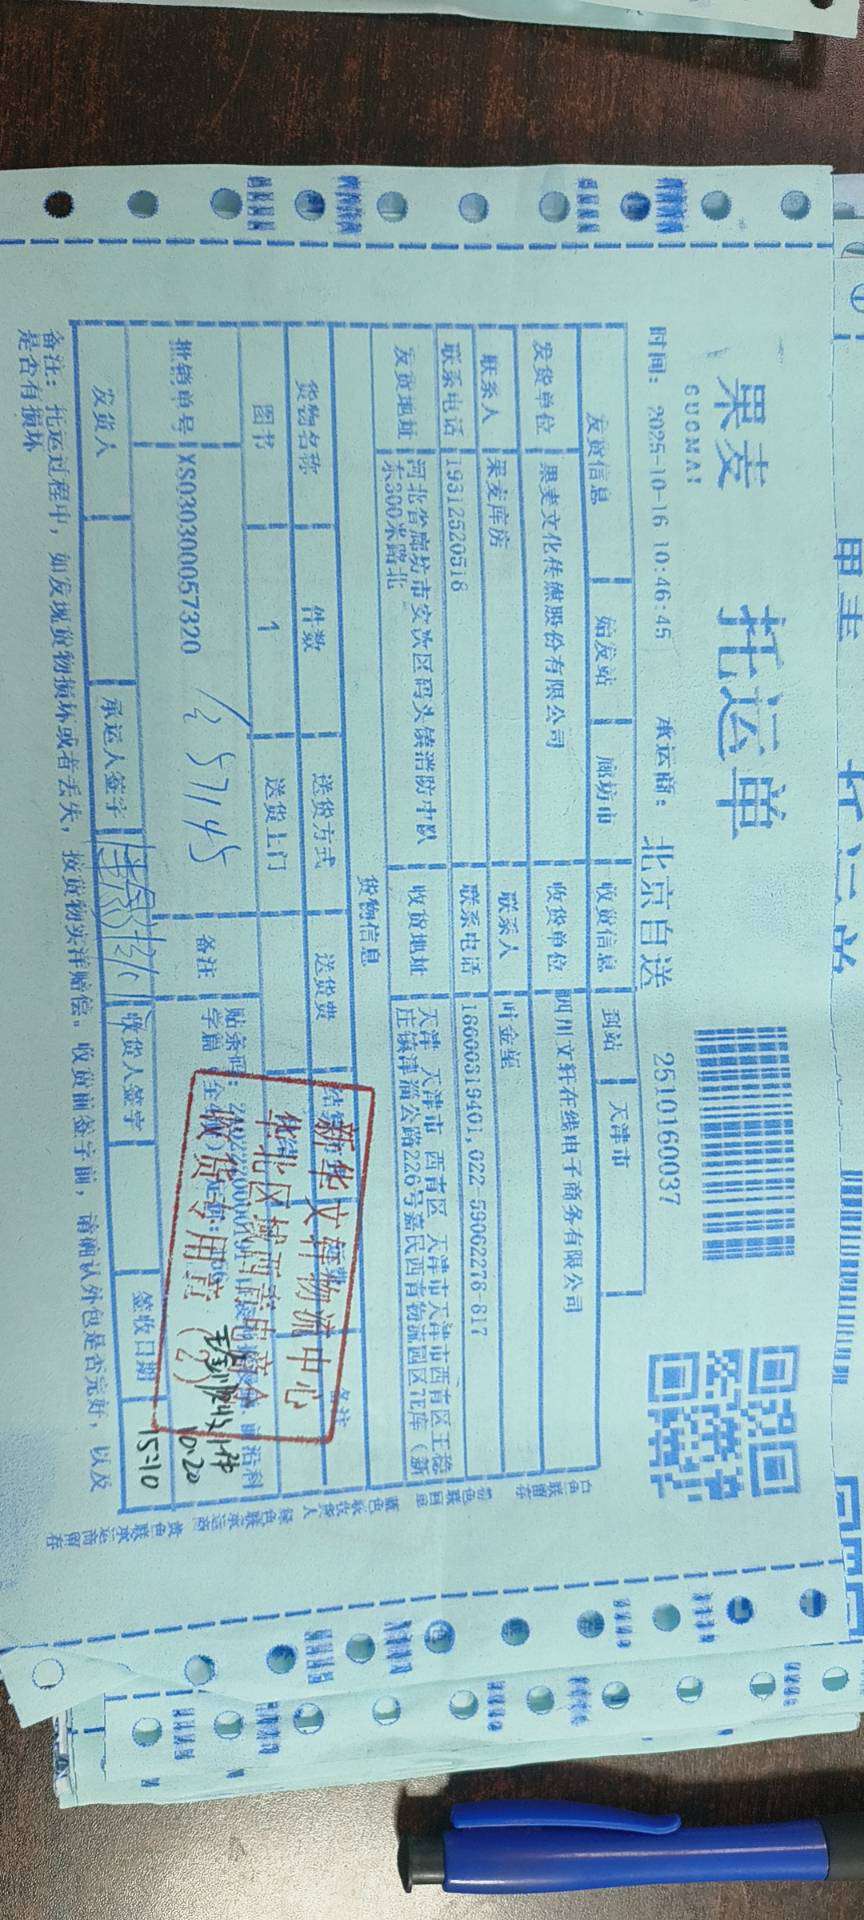 果麦
GUOMAI
托运单
2510160037
时间: 2025-10-16 10:46:45 承运商: 北京自送
发货信息 始发站 廊坊市 收货信息 到站 天津市
发货单位 果麦文化传媒股份有限公司 收货单位 四川文轩在线电子商务有限公司
联系人 果麦库房 联系人 叶金莹
联系电话 19312520518 联系电话 18600319401,022-59062278-817
发货地址 河北省廊坊市安次区码头镇消防中队东300米路北 收货地址 天津 天津市 西青区 天津市天津市西青区王稳庄镇津淄公路226号嘉民西青物流园区7E库(新
货物信息
货物名称 件数 送货方式 送货费 备注
图书 1 送货上门
批销单号 XS0303000057320 备注 贴条码:
257145
学篇
新华文轩物流中心
华北区域西青电商仓
收货专用章
(2)
10.20
15:10
发货人 承运人签字 收货人签字 签收日期
备注: 托运过程中, 如发现货物损坏或者丢失, 按货物实洋赔偿。收货前签字前, 请确认外包是否完好, 以及
是否有损坏
白色联留存 粉色联回单 蓝色联收货人 绿色联承运商 黄色联承运商留存